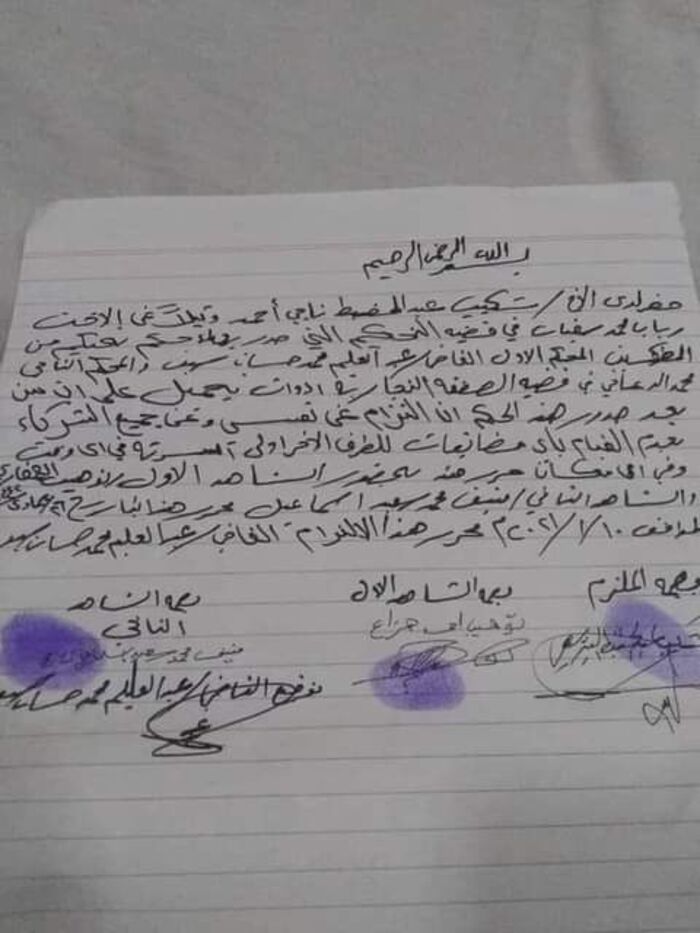 بسم الله الرحمن الرحيم
حضر لدي الاخ / شكيب عبد المحيط ناجي أحمد وكيلاً عن الاخت
رباب محمد سفيان في قضيه التحكيم التي صدر بها حكم تحكيم من
المحكمين المحكم الاول القاضي / عبد العليم محمد حسان والمحكم الثاني
محمد الدعاني في قضيه الصفقه التجاريه ادوات تجميل على ان من
بعد صدور هذ الحكم ان التزام عن نفسي وعن جميع الشركاء
بعدم القيام بأي مضايقات للطرف الاخر اولى في اي وقت
وفي اي مكان حرر هذ بحضور الشاهد الاول /
والشاهد الثاني / منيف محمد سعيد اسماعيل محرر هذ التاريخ
الموافق ٢٠٢١/١/١٠م محرر هذا الالتزام القاضي / عبد العليم محمد حسان
بصمه الملزم
بصمه الشاهد الاول
بصمه الشاهد
الثاني
منيف محمد سعيد
توقيع القاضي / عبد العليم محمد حسان